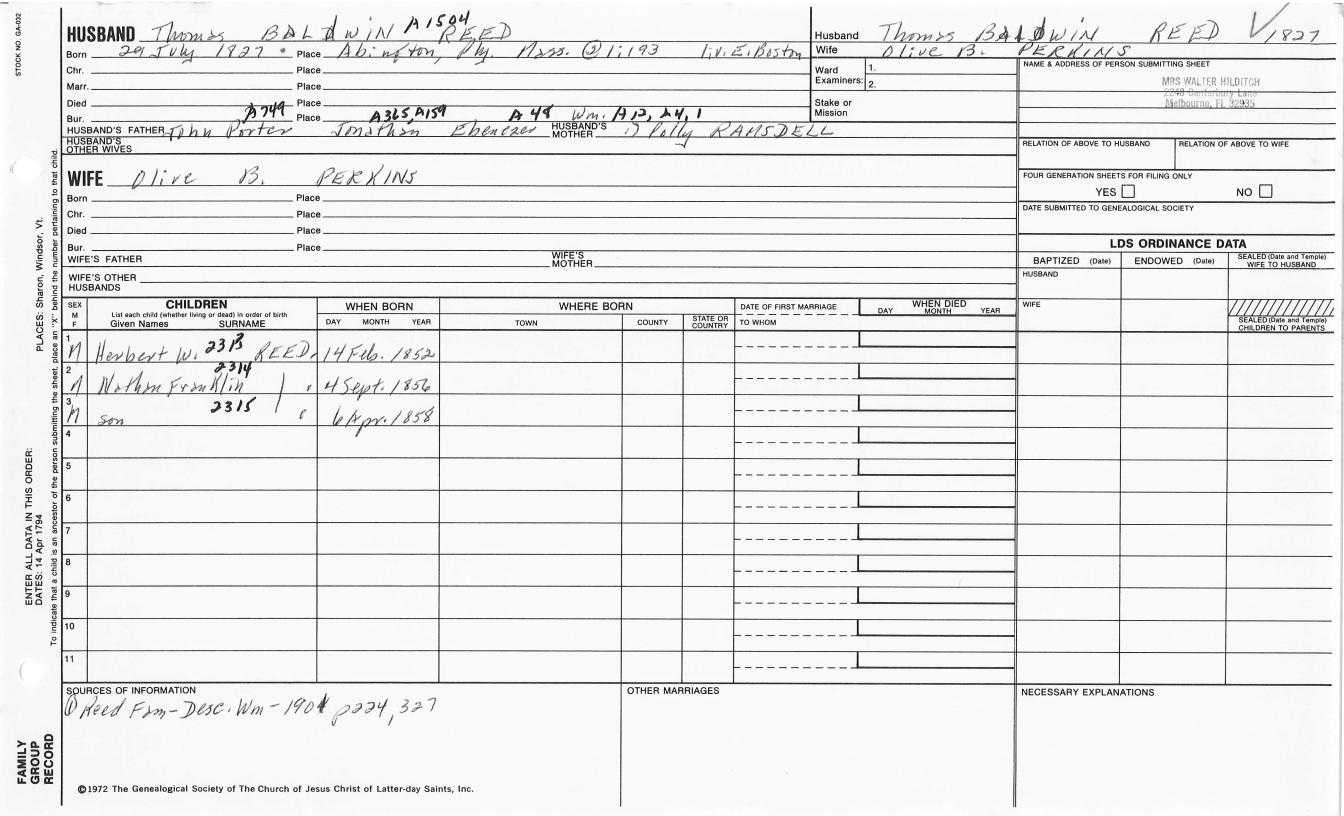 STOCK NO. GA-032
A1504
HUSBAND Thomas BALDWIN REED
Born 29 July 1827 Place Abington, Ply. Mass. @ 1:193 liv. E. Boston
Chr. Place
Marr. Place
Died Place
A749 A365, A159 A48 Wm. A12, A4, 1
Bur. Place
HUSBAND'S FATHER John Porter Jonathan Ebenezer HUSBAND'S MOTHER Polly RAMSDELL
HUSBAND'S OTHER WIVES
WIFE Olive B. PERKINS
Born Place
Chr. Place
Died Place
Bur. Place
WIFE'S FATHER WIFE'S MOTHER
WIFE'S OTHER HUSBANDS
Husband Thomas BALDWIN REED 1827
Wife Olive B. PERKINS
Ward Examiners: 1.
2.
Stake or Mission
NAME & ADDRESS OF PERSON SUBMITTING SHEET
MRS WALTER HILDITCH
2248 Canterbury Lane
Melbourne, FL 32935
RELATION OF ABOVE TO HUSBAND RELATION OF ABOVE TO WIFE
FOUR GENERATION SHEETS FOR FILING ONLY
YES NO
DATE SUBMITTED TO GENEALOGICAL SOCIETY
LDS ORDINANCE DATA
BAPTIZED (Date) ENDOWED (Date) SEALED (Date and Temple) WIFE TO HUSBAND
HUSBAND
WIFE
SEALED (Date and Temple) CHILDREN TO PARENTS
SEX M F
CHILDREN
List each child (whether living or dead) in order of birth
Given Names SURNAME
WHEN BORN
DAY MONTH YEAR
WHERE BORN
TOWN COUNTY STATE OR COUNTRY
DATE OF FIRST MARRIAGE
TO WHOM
WHEN DIED
DAY MONTH YEAR
1 M Herbert W. 2313 REED 14 Feb. 1852
2 M Nathan Franklin 2314 " 4 Sept. 1856
3 M son 2315 " 6 Apr. 1858
4
5
6
7
8
9
10
11
SOURCES OF INFORMATION
① Reed Fam-Desc. Wm-1901 p224, 327
OTHER MARRIAGES
NECESSARY EXPLANATIONS
©1972 The Genealogical Society of The Church of Jesus Christ of Latter-day Saints, Inc.
FAMILY GROUP RECORD
ENTER ALL DATA IN THIS ORDER:
DATES: 14 Apr 1794
PLACES: Sharon, Windsor, Vt.
To indicate that a child is an ancestor of the person submitting the sheet, place an "X" behind the number pertaining to that child.